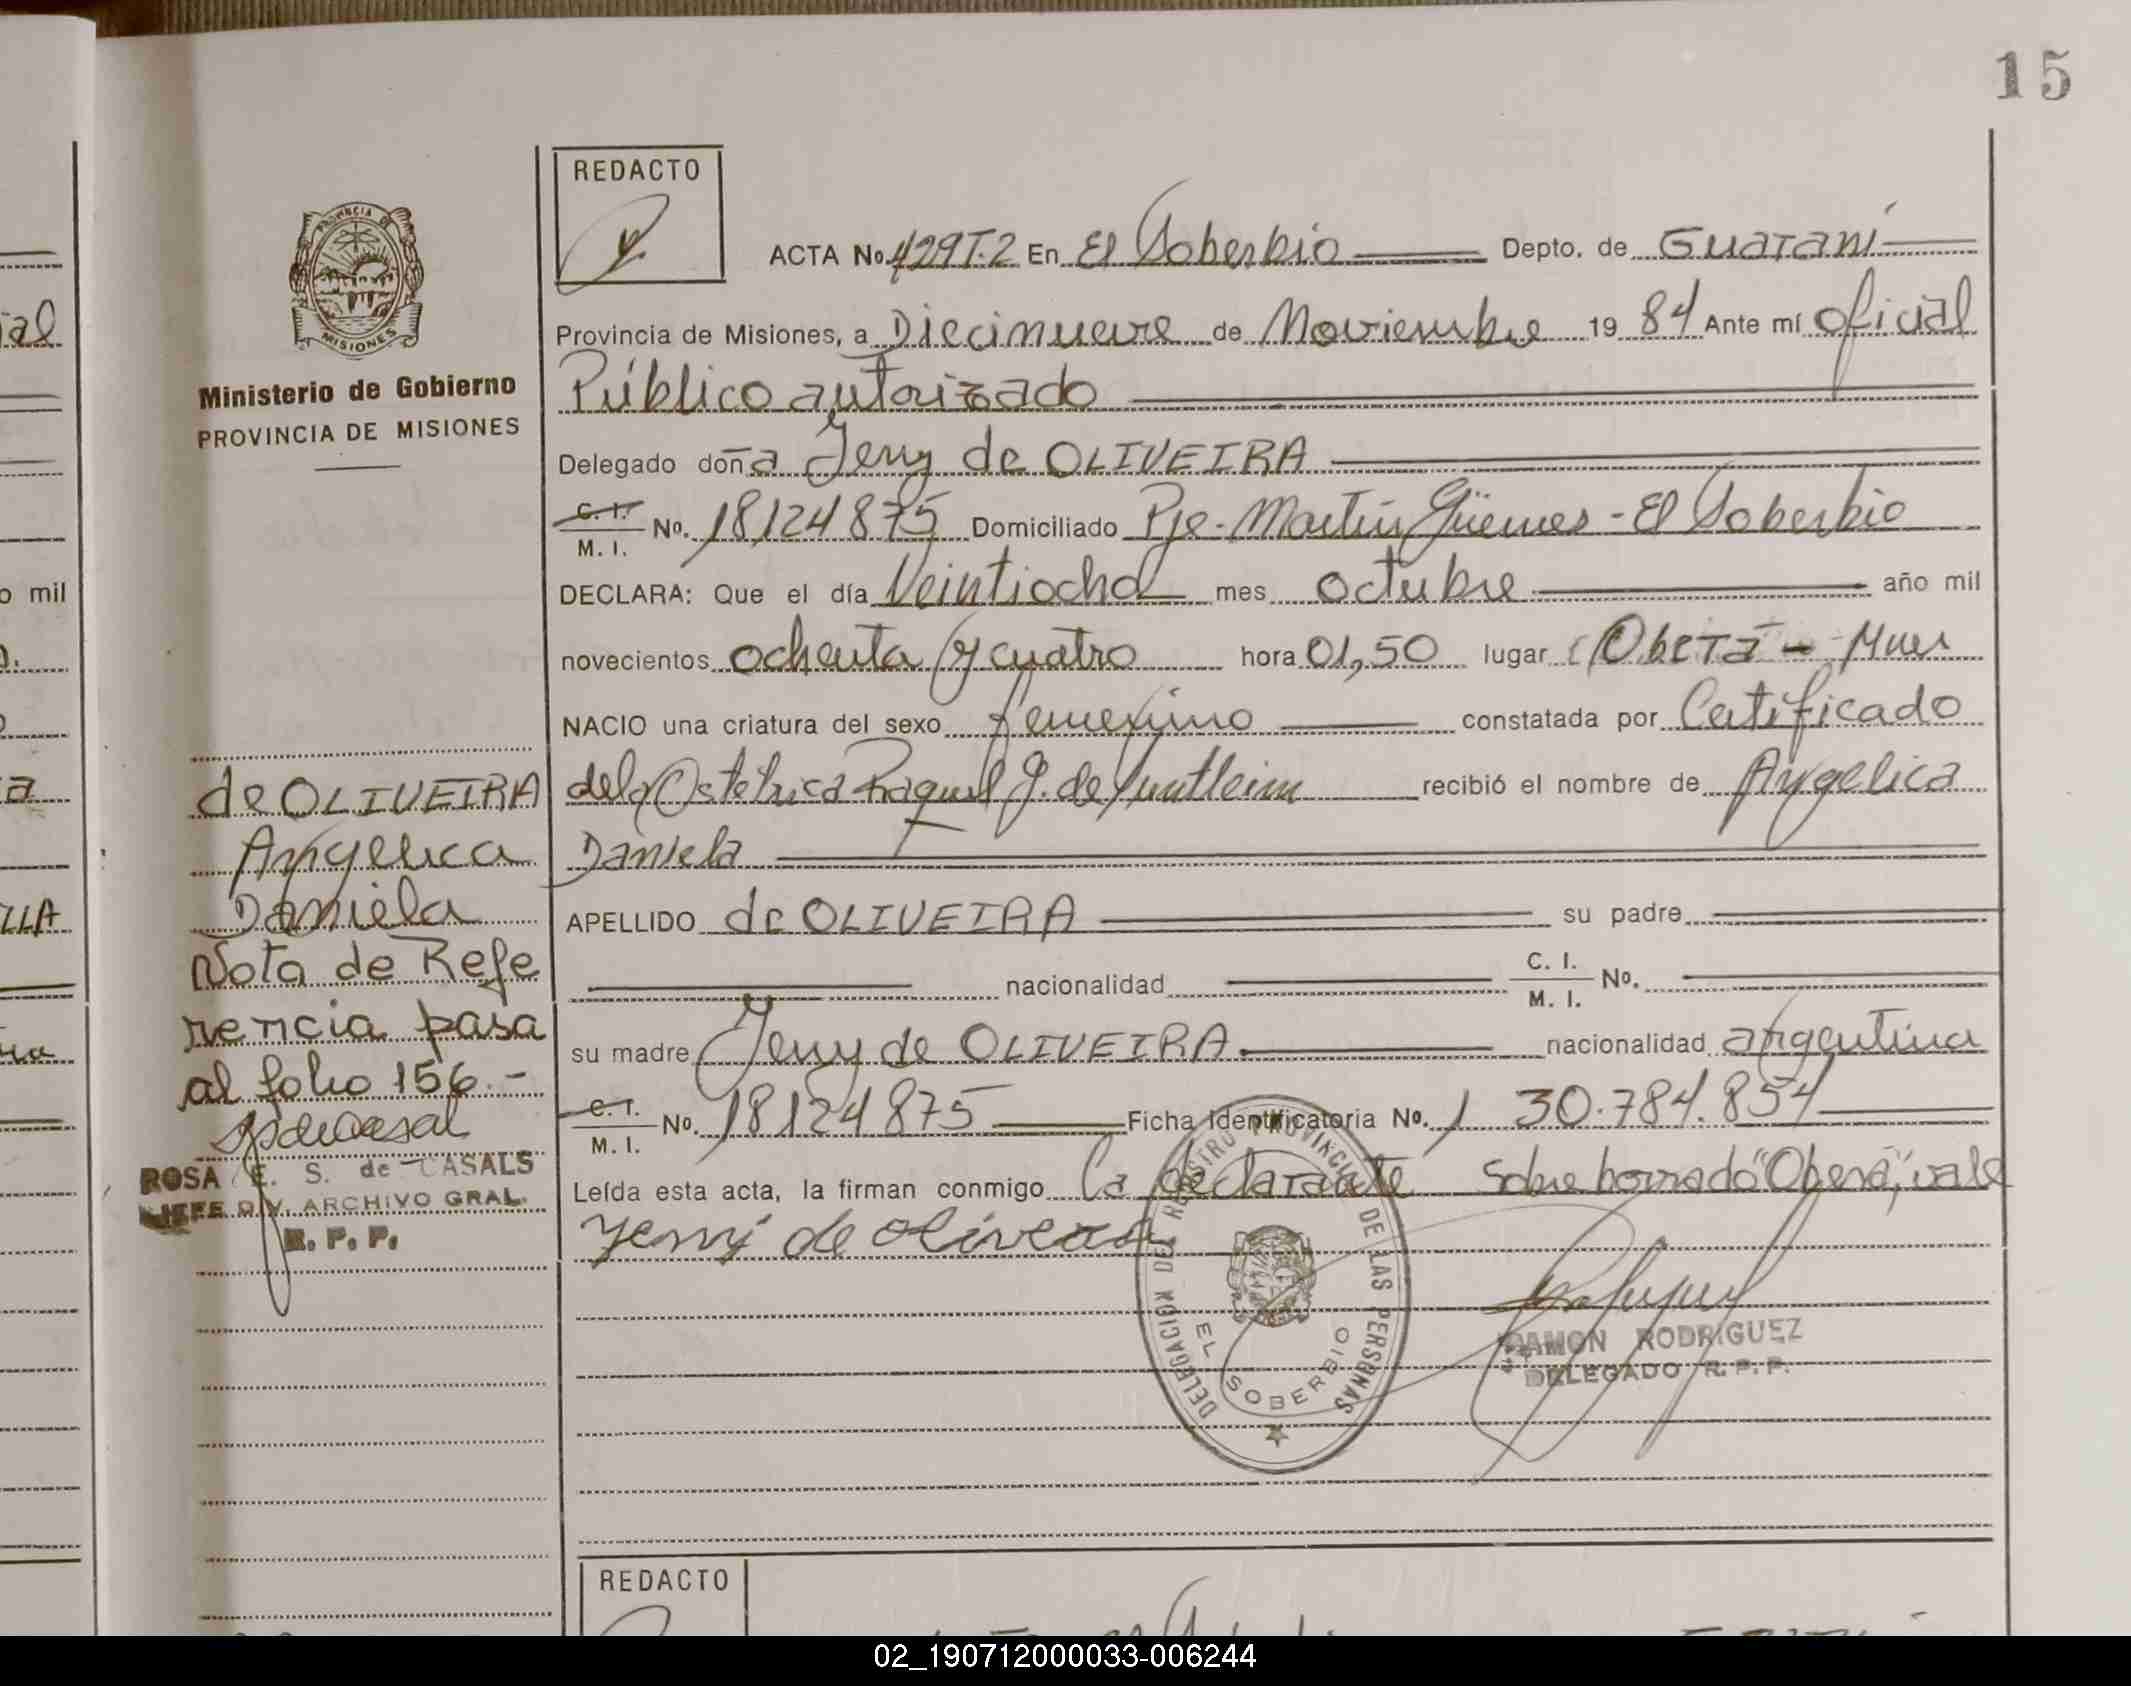 15
REDACTO
ACTA No. 429T.2 En El Soberbio Depto. de Guaraní
Provincia de Misiones, a Diecinueve de Noviembre 19 84 Ante mí oficial
Público autorizado
Delegado doña Jeny de OLIVEIRA
C. I.
M. I. No. 18124875 Domiciliado Pje. Martín Güemes - El Soberbio
DECLARA: Que el día Veintiocho mes octubre año mil
novecientos ochenta y cuatro hora 01,50 lugar Oberá - Mnes
NACIO una criatura del sexo femenino constatada por Certificado
de la Ostetrica Raquel G. de recibió el nombre de Angelica
Daniela
APELLIDO de OLIVEIRA su padre
nacionalidad C. I.
M. I. No.
su madre Jeny de OLIVEIRA nacionalidad argentina
C. I.
M. I. No. 18124875 Ficha Identificatoria No. 30.784.854
Leída esta acta, la firman conmigo La declarante Sobre borrado "Oberá", vale
Jeny de oliveira
DELEGACION DEL REGISTRO PROVINCIAL DE LAS PERSONAS
EL SOBERBIO
RAMON RODRIGUEZ
DELEGADO R. P. P.
PROVINCIA DE
MISIONES
Ministerio de Gobierno
PROVINCIA DE MISIONES
de OLIVEIRA
Angelica
Daniela
Nota de Refe
rencia pasa
al folio 156.-
ROSA E. S. de CASALS
JEFE DIV. ARCHIVO GRAL.
R. P. P.
REDACTO
o mil
LLA
02_190712000033-006244